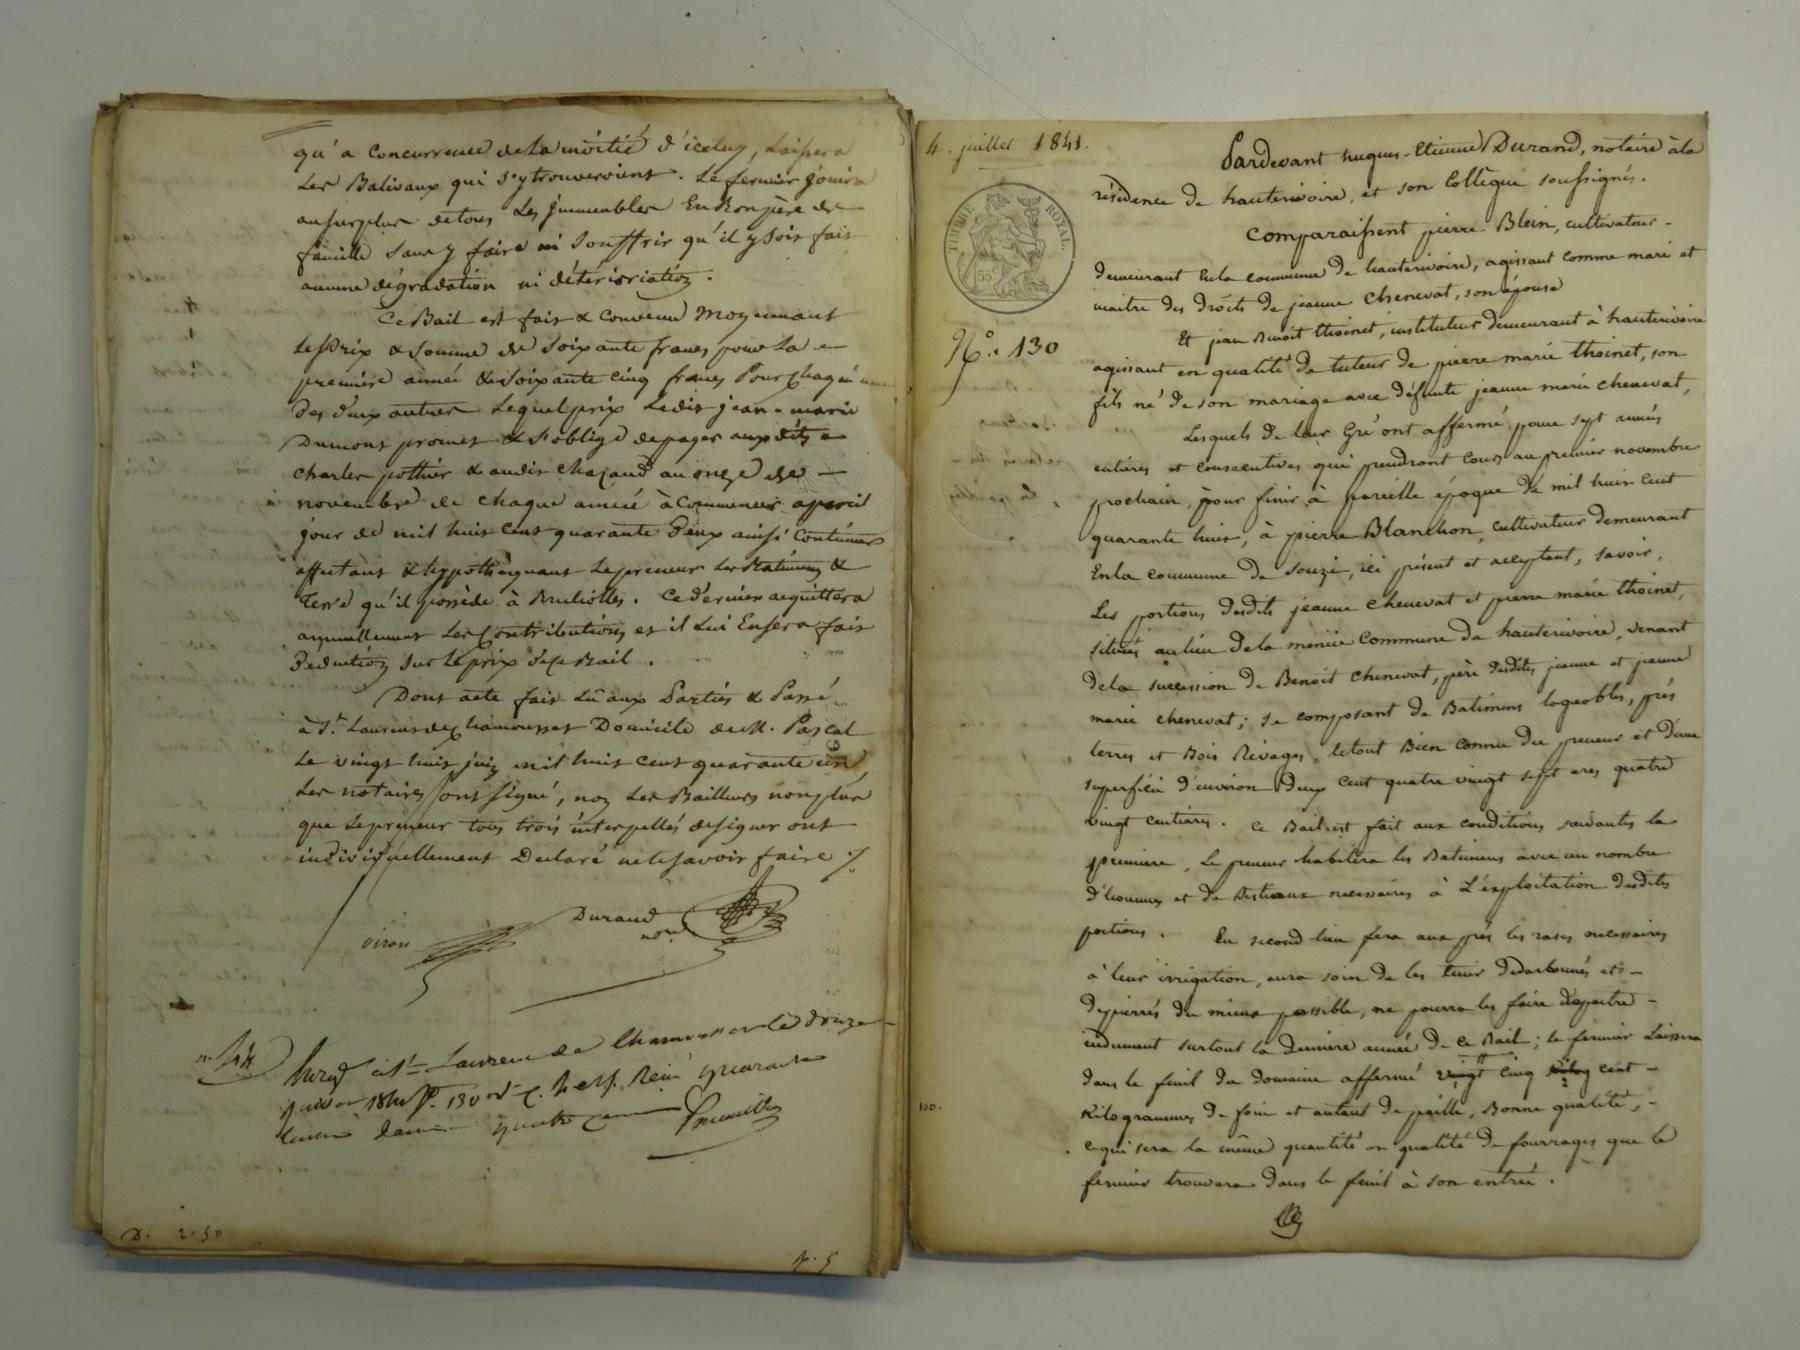 qu'a concurrence de la moitié d'icelux, Laissera
Les Balivaux qui s'y trouveroient. Le fermier jouira
au surplus de tous Les Immeubles En Bon père de
famille Sans y faire ni Souffrir qu'il y soit fait
aucune dégradation ni détérioriation.
Ce Bail est fait & convenu Moyennant
Le Prix & Somme de Soixante francs pour La
première année & Soixante cinq francs Pour chaqu'une
Des deux autres Lequel prix Ledit jean-marie
Dumont promet & s'oblige de payer aux dits
charles pothier & audit chazaud au onze de
novembre de chaque année à Commencer a pareil
jour de mil huit Cent quarante Deux ainsi Continuer
affectant & hypothèquant Le preneur Les Batimens &
Terre qu'il possède à Brulioles. Ce dernier acquittera
annuellement Les Contributions et il Lui En sera fait
Déduction sur Le prix de ce Bail.
Dont acte fait Lu aux Parties & Passé
à St. Laurent de Chamousset Domicile de M. Pascal
Le vingt huit juin mil huit Cent quarante un
Les notaires ont signé, non Les Bailleurs non plus
que Le preneur tous trois interpellés de signer ont
individuellement Déclaré ne le savoir faire ./.
viron
Durand
not.
à St Laurent de Chamousset le douze
quarante
D. 2.50
4. juillet 1841.
TIMBRE ROYAL.
35 c
N.° 130
Pardevant hugues-Etienne Durand, notaire à la
résidence de hauterivoire, et son Collègue soussignés.
Comparaissent pierre Blein, cultivateur
demeurant En la commune de hauterivoire, agissant comme mari et
maitre des droits de jeanne Chenevat, son épouse
Et jean Benoit thoinet, instituteur demeurant à hauterivoire
agissant en qualité de tuteur de pierre marie thoinet, son
fils né de son mariage avec défunte jeanne marie chenevat,
Lesquels de leur Gré ont affermé pour sept années
entières et consecutives qui prendront cours au premier novembre
prochain, pour finir à pareille époque de mil huit cent
quarante huit, à pierre Blanchon, cultivateur demeurant
En la commune de Souzi, ici présent et acceptant, savoir,
Les portions desdits jeanne Chenevat et pierre marie thoinet,
situées au lieu de la menue commune de hauterivoire, venant
de la succession de Benoit chenevat, père desdites jeanne et jeanne
marie chenevat; se composant de Batimens logeables, prés
terres et Bois Rivages, le tout Bien connu du preneur et d'une
superficie d'environ Deux cent quatre vingt sept ares quatre
vingt centiares. Ce Bail est fait aux conditions suivantes la
premiere, Le preneur habitera les Batimens avec un nombre
d'hommes et de Bestiaux necessaires à L'exploitation desdites
portions. En second lieu fera aux prés les rases necessaires
à leur irrigation, aura soin de les tenir
dépierrés du mieux possible, ne pourra les faire dépaitre
induement surtout la derniere année de ce Bail; le fermier Laissera
dans le fenil du domaine affermé vingt cinq cent
100.
Kilogrammes de foin et autant de paille, Bonne qualité,
ce qui sera la même quantité en qualité de fourrages que le
fermier trouvera dans le fenil à son entrée.